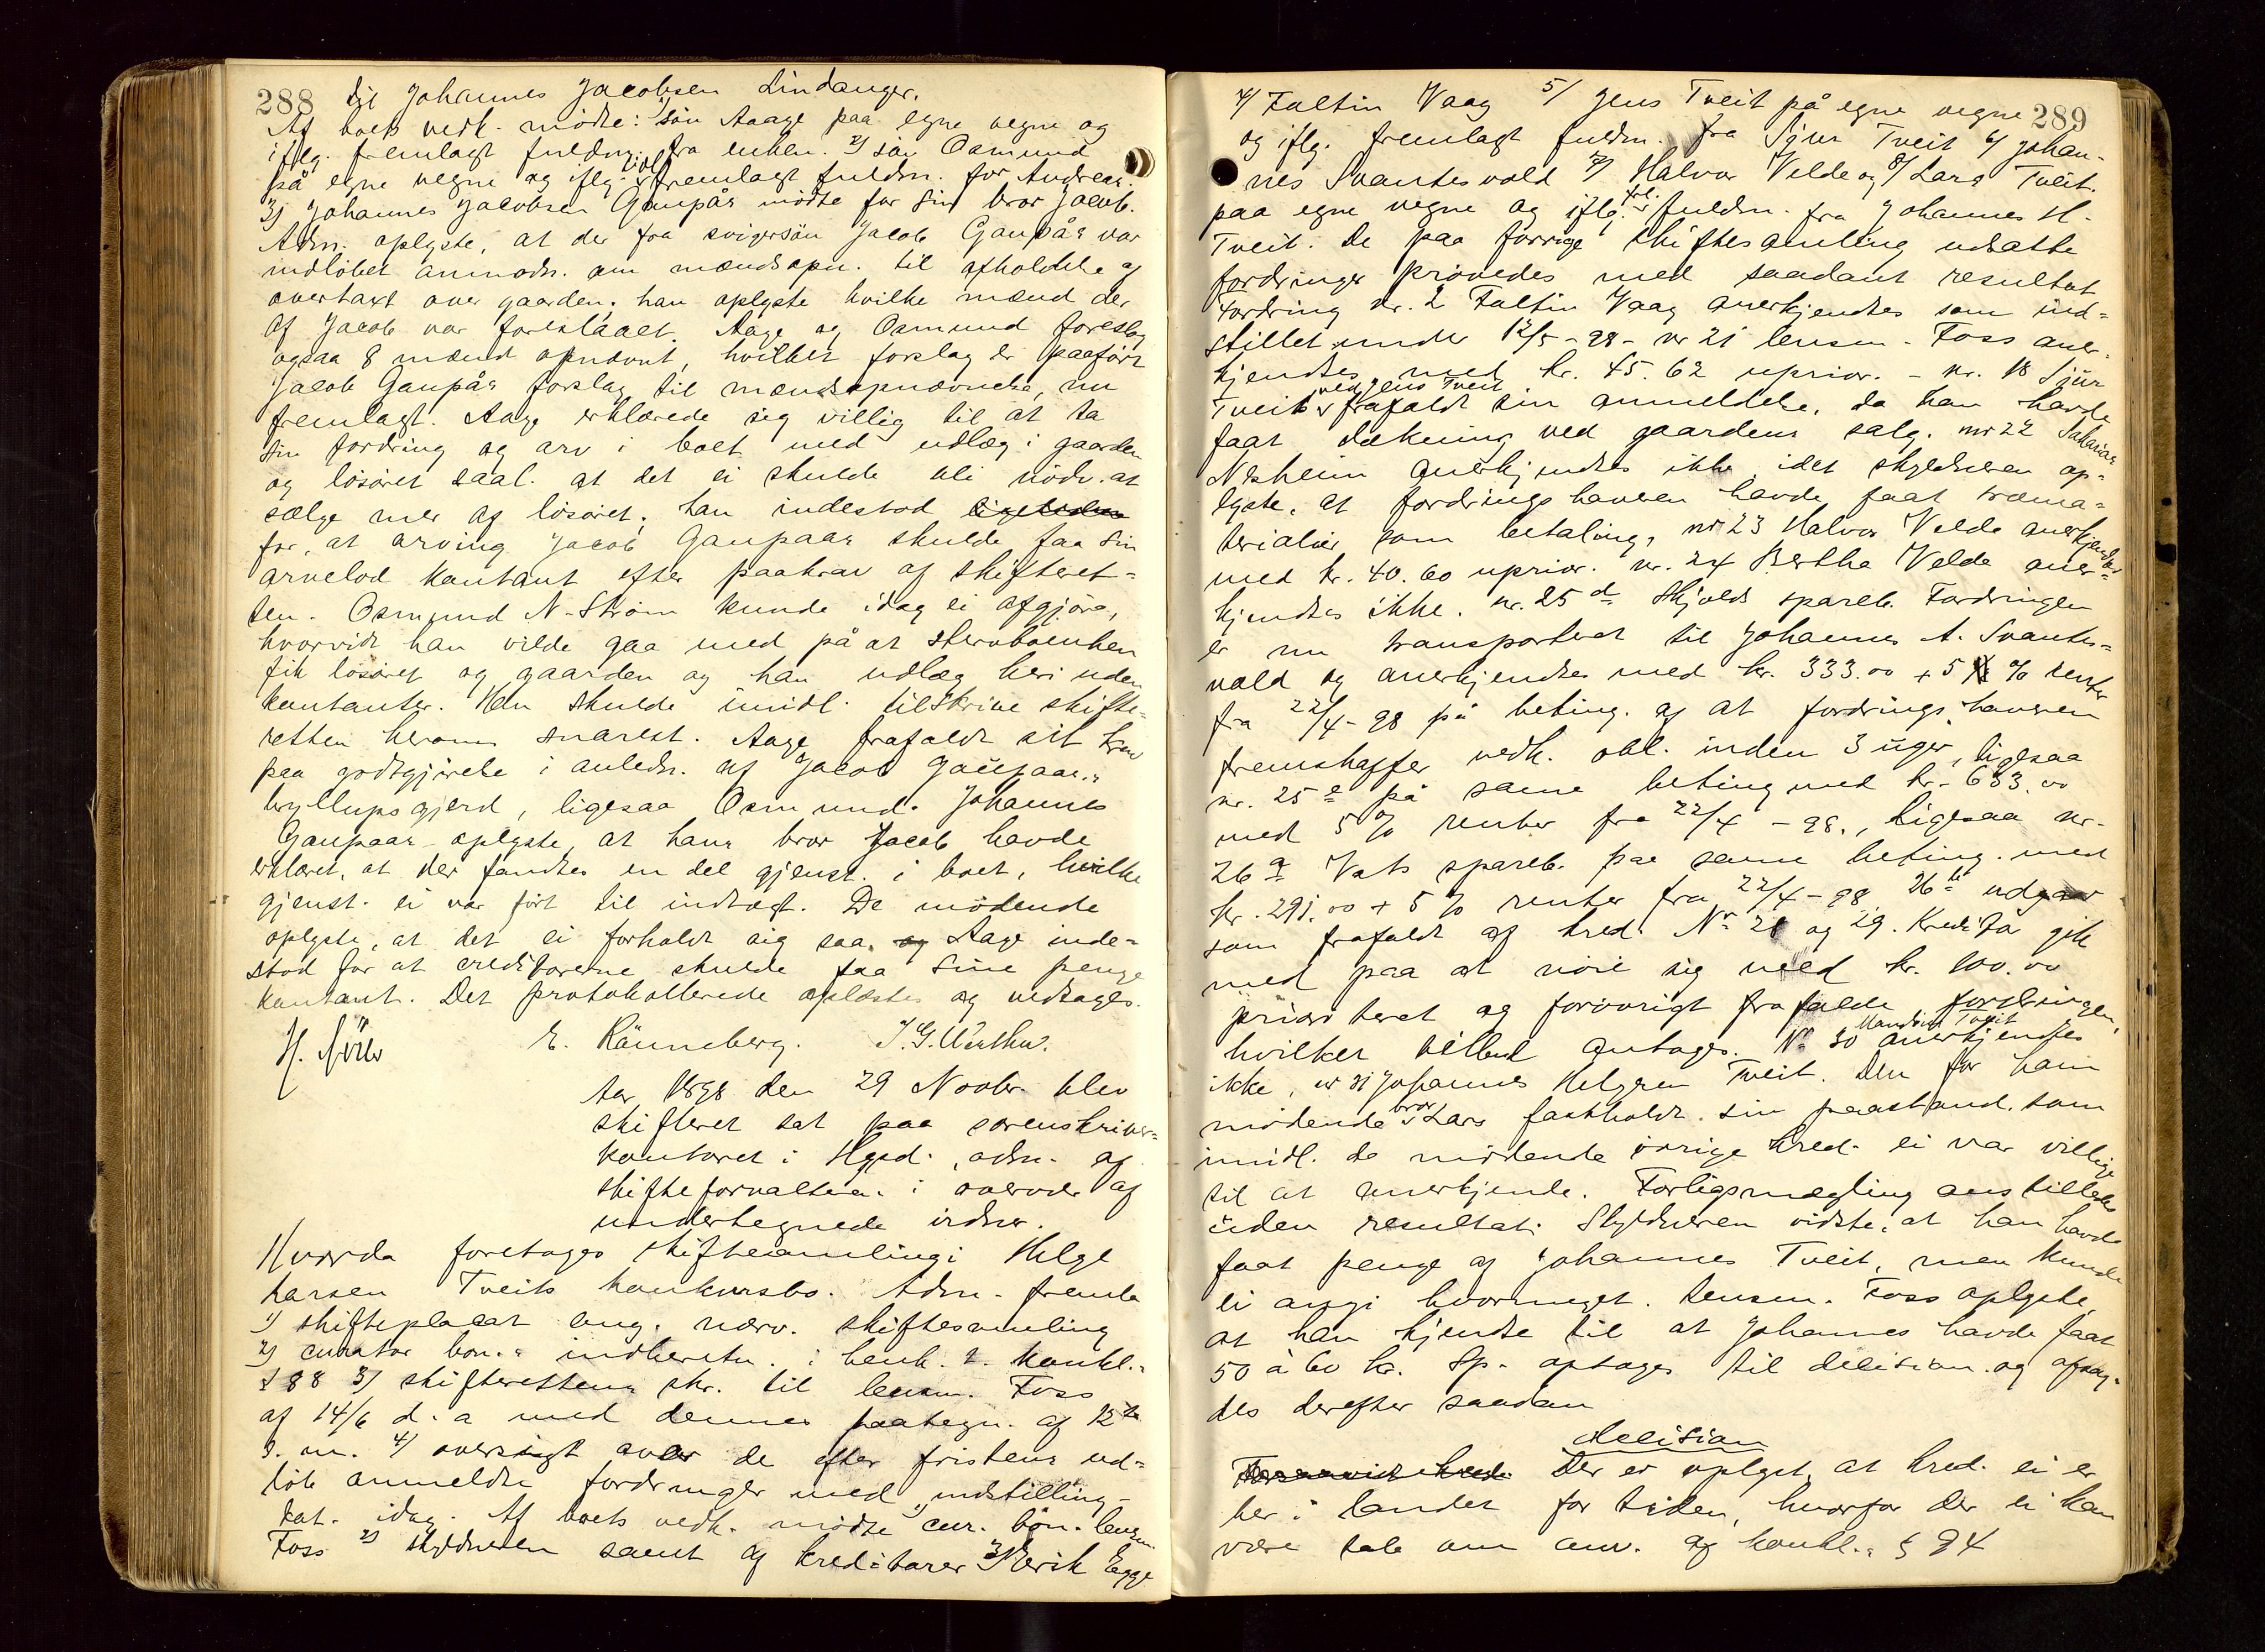 288 til Johannes Jacobsen Lindanger.
Af boets vedk. mødte: 1) søn Aaage paa egne vegne og
iflg. fremlagt fuldm. fra enken. 2) søn Osmund
på egne vegne og iflg. fremlagt fuldm. for Andreas.
3) Johannes Jacobsen Gaupås mødte for sin bror Jacob.
Adm. oplyste, at der fra svigersøn Jacob Gaupås var
indløbet anmodn. om mændsopn. til afholdelse af
overtaxt over gaarden; han oplyste hvilke mænd der
af Jacob var foreslaaet. Aage og Osmund foreslog
ogsaa 8 mænd opnævnt, hvilket forslag er paaført
Jacob Gaupås forslag til mændsopnævnelse, nu
fremlagt. Aage erklærede sig villig til at ta
sin fordring og arv i boet med udlæg i gaarden
og løsøret saal. at det ei skulde bli nødv. at
sælge mer af løsøret; han indestod
for, at arving Jacob Gaupaas skulde faa sin
arvelod kontant efter paakrav af skifteret-
ten. Osmund N-Strøm kunde idag ei afgjøre,
hvorvidt han vilde gaa med på at stervboenken
fik løsøret og gaarden og han udlæg heri uden
kontanter. Han skulde imidl. tilskrive skifte-
retten herom snarest. Aage frafaldt sit krav
paa godtgjørelse i anledn. af Jacob Gaupaas
bryllupsgjerd, ligesaa Osmund. Johannes
Gaupaas oplyste, at hans bror Jacob havde
erklæret, at der fandtes en del gjenst. i boet, hvilke
gjenst. ei var ført til indtægt. De mødende
oplyste, at det ei forholdt sig saa. og Aage inde-
stod for at creditorerne skulde faa sine penge
kontant. Det protokollerede oplæstes og vedtoges.
E. Rønneberg.
Aar 1898 den 29 Novbr. blev
skifteret sat paa sorenskriver-
kontoret i Hgsd. adm. af
skifteforvalteren i overvær af
undertegnede vidner.
Hvorda foretoges skiftesamling i Helge
Larsen Tveits konkursbo. Adm. fremla
1) skifteplacat ang. nærv. skiftesamling
2) curator bon.s indberetn. i henh. t. konkl.s
§ 88 3) skifterettens skr. til lensm. Foss
af 14/6 d. a med dennes paategn. af 12te
s. m. 4) oversigt over de efter fristens ud-
løb anmeldte fordringer med indstilling
dat. idag. Af boets vedk. mødte cur. bon. lensm.
Foss 2) skyldneren samt af kreditorer 3) Eerik Egge
4) Faltin Vaag 5) Jens Tveit på egne vegne 289
og iflg. fremlagt fuldm. fra Sjur Tveit 6) Johan-
nes Svantesvold 7) Halvor Velde og 8) Lars Tveit.
paa egne vegne og iflg. frl. fuldm. fra Johannes H.
Tveit. De paa forrige skiftesamling udsatte
fordringer prøvedes med saadant resultat
Fordring nr. 2 Faltin Vaag anerkjendtes som ind-
stillet under 12/5 - 98 - nr 21 lensm. Foss aner-
kjendtes med kr. 45.62 uprior. - nr. 18 Sjur
Tveit ved Jens Tveit frafaldt sin anmeldelse, da han havde
faat dækning ved gaardens salg. nr 22 Zakarias
Nesheim anerkjendtes ikke, idet skyldneren op-
lyste, at fordringshaveren havde faat træma-
terialier som betaling, nr 23 Halvor Velde anerkjendtes
med kr. 40.60 uprior. nr. 24 Berthe Velde aner-
kjendtes ikke. nr. 25 d Skjolds spareb. Fordringen
er nu transporteret til Johannes A. Svantes-
vold og anerkjendtes med kr. 333.00 + 5 % renter
fra 22/4 - 98 på beting. af at fordringshaveren
fremskaffer vedk. obl. inden 3 uger, ligesaa
nr. 25 e på same beting med kr. 633.00
med 5 % renter fra 22/4 - 98., ligesaa nr.
26 a Vats spareb. paa same beting. med
kr. 291.00 + 5 % renter fra 22/4 - 98 26 b udgaar
som frafaldt af kred. No 28 og 29. Kreditor gik
med paa at nøie sig med kr. 100.00
prioriteret og forøvrigt frafalde fordringen,
hvilket tilbud antoges. No 30 Mandius Tveit anerkjendtes
ikke, nr 31 Johannes Helgesen Tveit. Den for ham
mødende bror Lars fastholdt sin paastand som
imidl. de mødende øvrige kred. ei var villige
til at anerkjende. Forligsmægling anstilledes
uden resultat. Skyldneren vidste, at han havde
faat penge af Johannes Tveit, men kunde
ei angi hvormeget. Lensm. Foss oplyste,
at han kjendte til at Johannes havde faat
50 à 60 kr. Sp. optoges til decision og afsag-
des derefter saadan
decision
Der er oplyst, at kred. ei er
her i landet for tiden, hvorfor der ei kan
være tale om anv. af konkl.s § 94